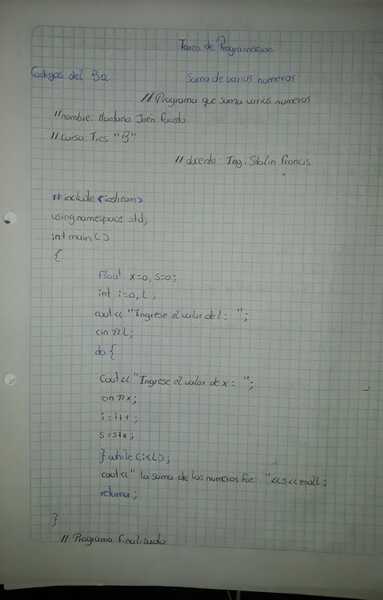 Tarea de Programacion
Codigos del Bloc Suma de varios numeros
// Programa que suma varios numeros
// nombre: Jaen Fausto
// curso: Tres "B"
// docente: Ing. Stalin Francis
#include <iostream>
using namespace std;
int main ()
{
float x=0, s=0;
int i=0, L;
cout << "Ingrese el valor de l: ";
cin >> L;
do {
cout << "Ingrese el valor de x: ";
cin >> x;
i=i+1;
s=s+x;
} while (i<L);
cout << " la suma de los numeros fue: " <<s<<endl;
return 0;
}
// Programa finalizado